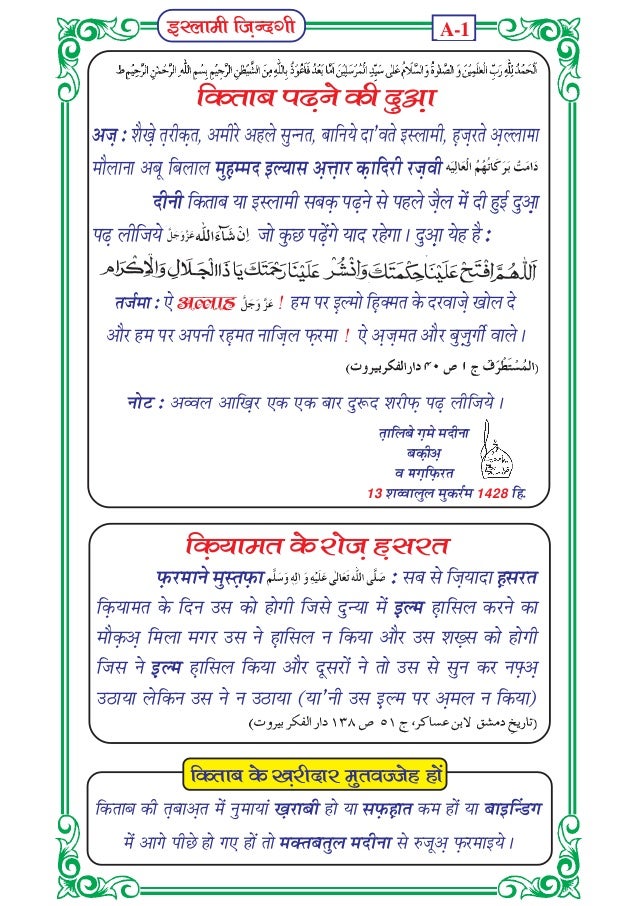 इस्लामी ज़िन्दगी
A-1
اَلْحَمْدُ لِلّٰهِ رَبِّ الْعٰلَمِيْنَ وَ الصَّلٰوةُ وَالسَّلَامُ عَلٰى سَيِّدِ الْمُرْسَلِيْنَ اَمَّا بَعْدُ فَاَعُوْذُ بِاللّٰهِ مِنَ الشَّيْطٰنِ الرَّجِيْمِ بِسْمِ اللّٰهِ الرَّحْمٰنِ الرَّحِيْمِ ط
किताब पढ़ने की दुआ़
अज़ : शैख़े त़रीक़त, अमीरे अहले सुन्नत, बानिये दा'वते इस्लामी, ह़ज़रते अ़ल्लामा
मौलाना अबू बिलाल मुह़म्मद इल्यास अ़त्त़ार क़ादिरी रज़वी دَامَتْ بَرَكَاتُهُمُ الْعَالِيَه
दीनी किताब या इस्लामी सबक़ पढ़ने से पहले जै़ल में दी हुई दुआ़
पढ़ लीजिये اِنْ شَآءَ اللّٰه عَزَّوَجَلَّ जो कुछ पढ़ेंगे याद रहेगा। दुआ़ येह है :
اَللّٰهُمَّ افْتَحْ عَلَيْنَا حِكْمَتَكَ وَانْشُرْ عَلَيْنَا رَحْمَتَكَ يَا ذَا الْجَلَالِ وَالْاِكْرَام
तर्जमा : ऐ अल्लाह عَزَّ وَجَلَّ ! हम पर इ़ल्मो ह़िक्मत के दरवाजे़ खोल दे
और हम पर अपनी रह़मत नाज़िल फ़रमा ! ऐ अ़ज़मत और बुज़ुर्गी वाले।
(المُسْتَطْرَف ج ١ ص ٤٠ دارالفكر بيروت)
नोट : अव्वल आख़िर एक एक बार दुरूद शरीफ़ पढ़ लीजिये।
त़ालिबे ग़मे मदीना
बक़ीअ़
व मग़्फ़िरत
13 शव्वालुल मुकर्रम 1428 हि.
क़ियामत के रोज़ ह़सरत
फ़रमाने मुस्त़फ़ा صَلَّى اللّٰهُ تَعَالٰى عَلَيْهِ وَ اٰلِهٖ وَسَلَّم : सब से ज़ियादा ह़सरत
क़ियामत के दिन उस को होगी जिसे दुन्या में इ़ल्म ह़ासिल करने का
मौक़अ़ मिला मगर उस ने ह़ासिल न किया और उस शख़्स को होगी
जिस ने इ़ल्म ह़ासिल किया और दूसरों ने तो उस से सुन कर नफ़्अ़
उठाया लेकिन उस ने न उठाया (या'नी उस इ़ल्म पर अ़मल न किया)
(تاريخ دمشق لابن عساكر، ج ٥١ ص ١٣٨ دار الفكر بيروت)
किताब के ख़रीदार मुतवज्जेह हों
किताब की त़बाअ़त में नुमायां ख़राबी हो या सफ़ह़ात कम हों या बाइन्डिंग
में आगे पीछे हो गए हों तो मक्तबतुल मदीना से रुजूअ़ फ़रमाइये।